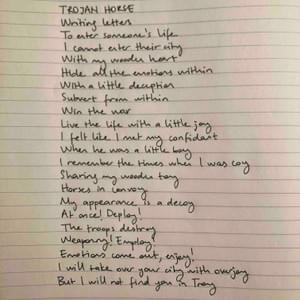 TROJAN HORSE
Writing letters
To enter someone's life
I cannot enter their city
With my wooden heart
Hide all the emotions within
With a little deception
Subvert from within
Win the war
Live the life with a little joy
I felt like I met my confidant
When he was a little boy
I remember the times when I was coy
Sharing my wooden toy
Horses in convoy
My appearance is a decoy
At once! Deploy!
The troops destroy
Weaponry! Employ!
Emotions come out, enjoy!
I will take over your city with overjoy
But I will not find you in Troy